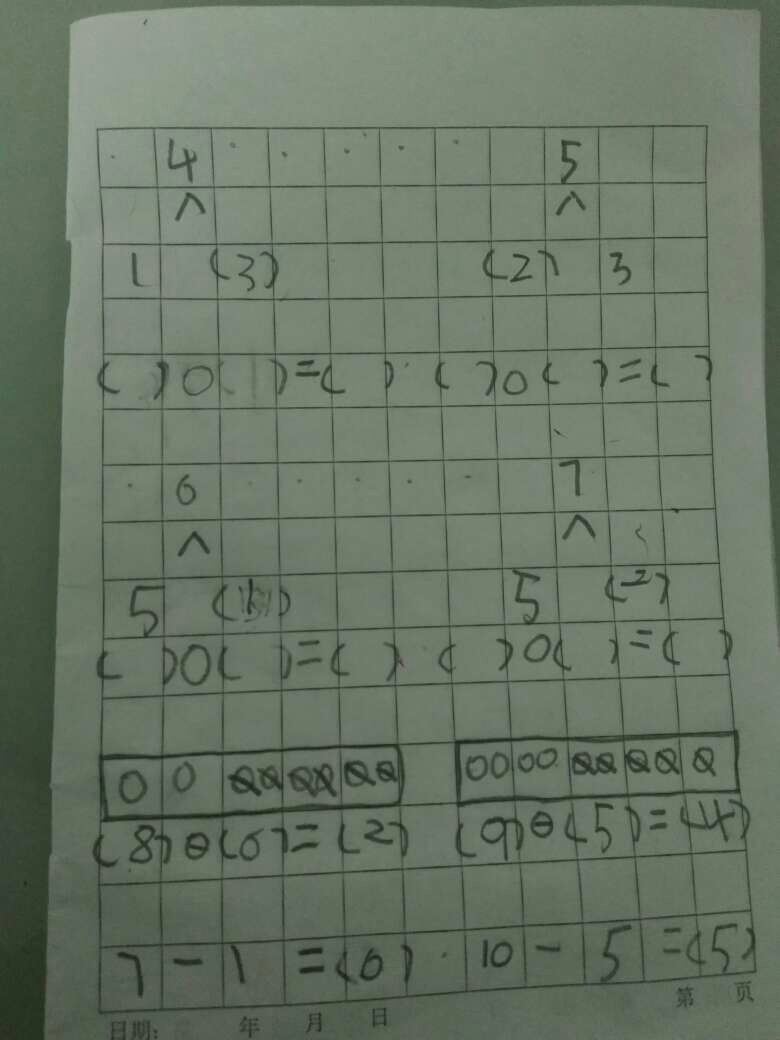 4 5
^ ^
1 (3) (2) 3
( )○( )=( ) ( )○( )=( )
6 7
^ ^
5 (1) 5 (2)
( )○( )=( ) ( )○( )=( )
(8)⊖(6)=(2) (9)⊖(5)=(4)
7-1=(6) 10-5=(5)
第 页
日期: 年 月 日